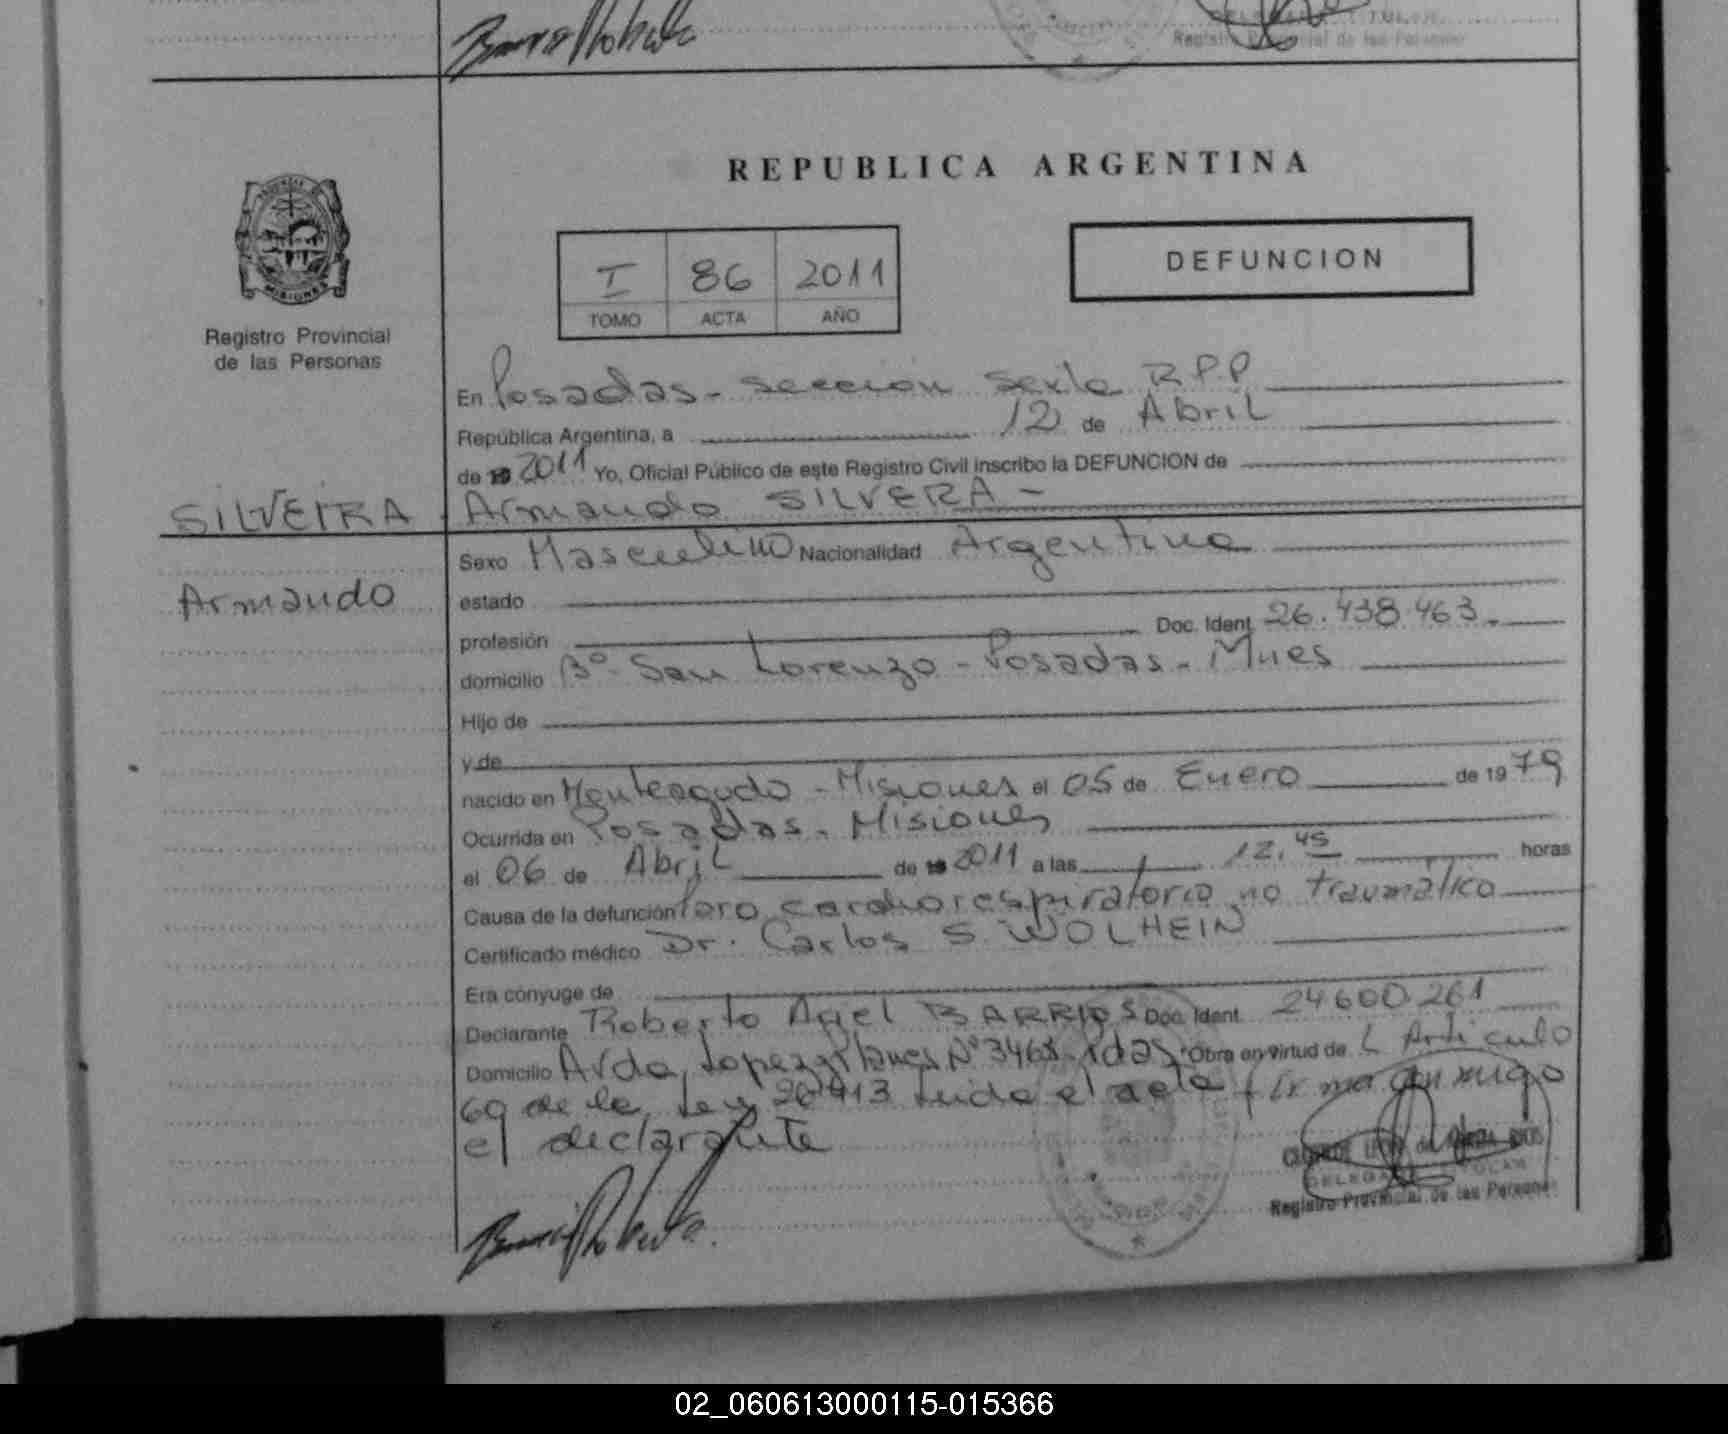 DELEGADA TITULAR
Registro Provincial de las Personas
REPUBLICA ARGENTINA
DEFUNCION
I 86 2011
TOMO ACTA AÑO
MISIONES
Registro Provincial
de las Personas
En Posadas - seccion sexta R.P.P
República Argentina, a 12 de Abril
de 19 2011 Yo, Oficial Público de este Registro Civil inscribo la DEFUNCION de
SILVEIRA Armando SILVERA -
Sexo Masculino Nacionalidad Argentina
Armando
estado
profesión Doc. Ident. 26.438.463.
domicilio Bº San Lorenzo - Posadas - Mnes
Hijo de
y de
nacido en Monteagudo - Misiones el 05 de Enero de 19 79
Ocurrida en Posadas - Misiones
el 06 de Abril de 19 2011 a las 12,45 horas
Causa de la defunción Paro cardiorespiratorio no traumático
Certificado médico Dr. Carlos S. WOLHEIN
Era cónyuge de
Declarante Roberto Ariel BARRIOS Doc. Ident. 24600.261
Domicilio Avda. Lopez y Planes Nº 3468 - Pdas. Obra en virtud de L Articulo
69 de la Ley 26413 Leida el acta firma conmigo
el declarante
Registro Provincial de las Personas
02_060613000115-015366